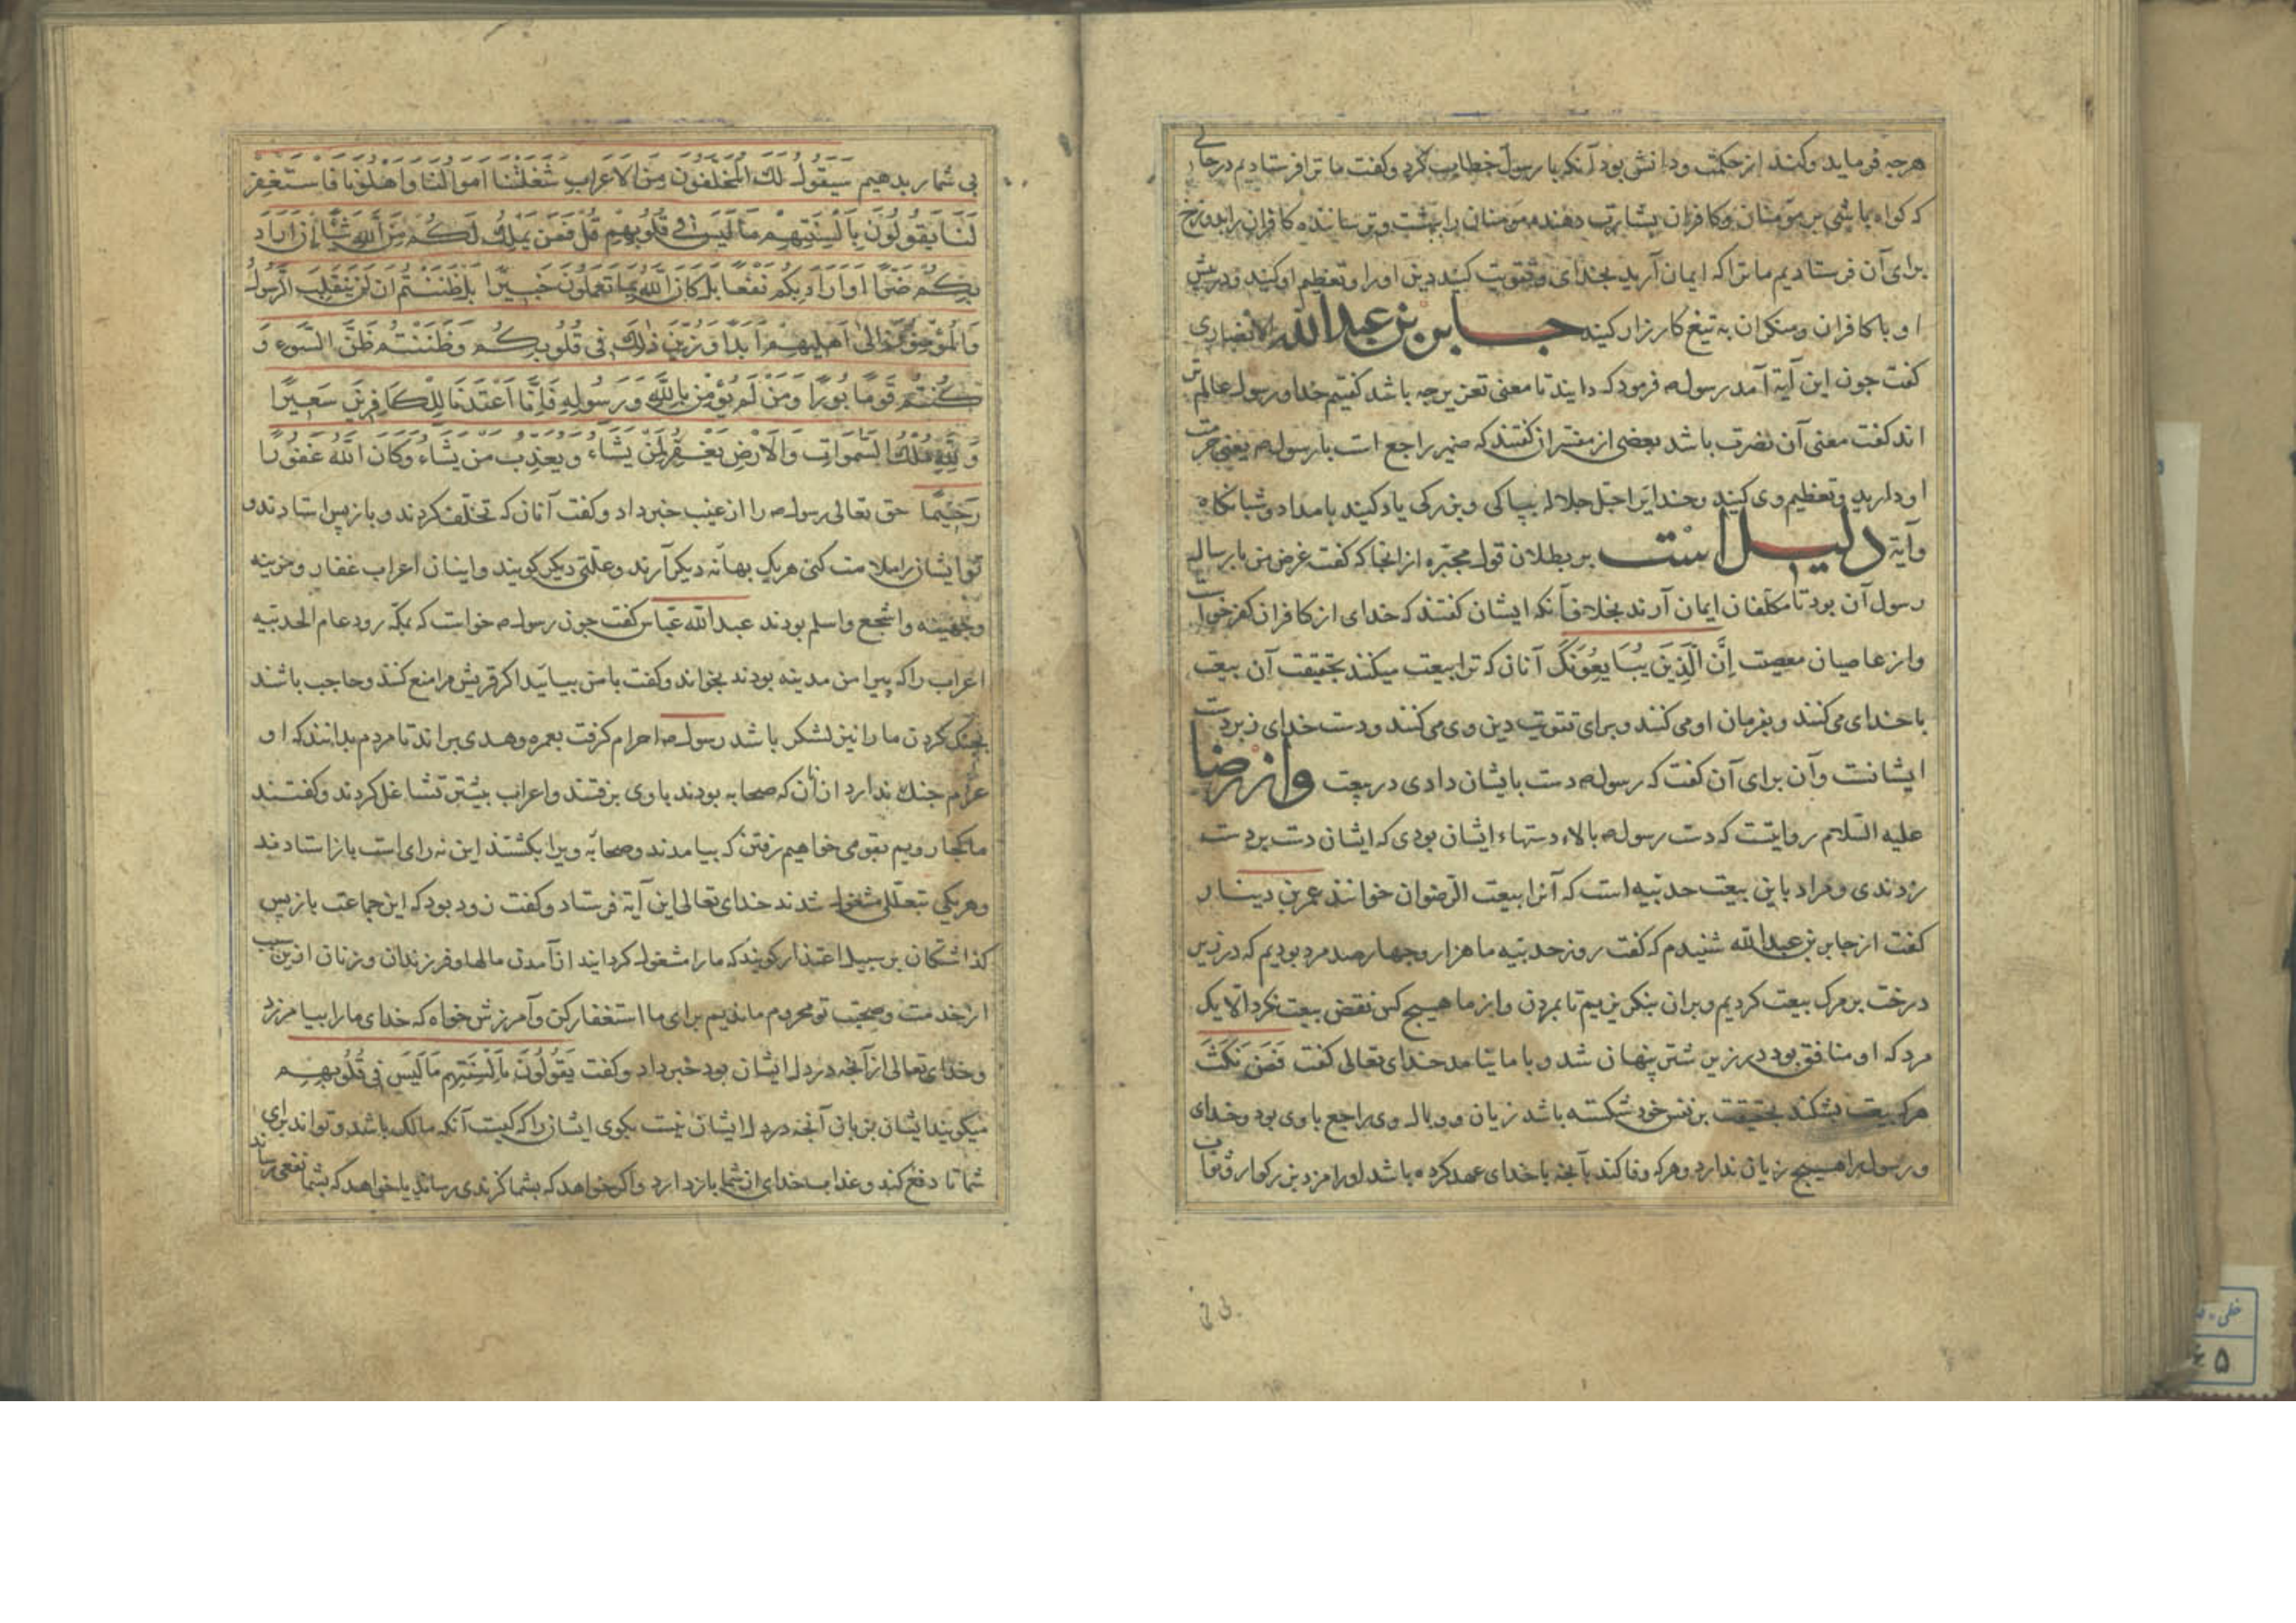 هرچه فرماید وکند از حکمت ودانش بود آنکه با رسول خطاب کرد وکفت ما ترا فرستادیم درحالی
که کواه باشی بر مؤمنان وکافران بشارت دهنده مومنان را ببهشت وترساننده کافران را بدوزخ
برای آن فرستادیم ما ترا که ایمان آرید بخدای وتقویت کنید دین اورا وتعظیم او کنید ودرپیش
او با کافران ومنکران به تیغ کارزار کنید جابر بن عبدالله الانصاری
کفت جون این آیة آمد رسول فرمود که دانید تا معنی تعزیر جه باشد کفتیم خدا ورسول عالم تر
اند کفت معنی آن نصرت باشد بعضی از مفسران کفتند که ضمیر راجع است با رسول یعنی حرمت
او دارید وتعظیم وی کنید وخدایرا جل جلاله بپاکی وبزرکی یاد کنید بامداد وشبانکاه
وآیة دلیل است بر بطلان قول مجبره از انجا که کفت غرض من بارسال
رسول آن بود تا مکلفان ایمان آرند بخلاف آنکه ایشان کفتند که خدای از کافران کفر خواست
واز عاصیان معصیت اِنَّ الَّذِينَ يُبَايِعُونَكَ آنان که ترا بیعت میکنند بحقیقت آن بیعت
با خدای می‌کنند وبفرمان او می کنند وبرای تقویت دین وی می کنند ودست خدای زبر دست
ایشانت وآن برای آن کفت که رسول دست بایشان دادی در بیعت واز رضا
علیه السلام روایتست که دست رسول بالاء دستهاء ایشان بودی که ایشان دست بر دست
زدندی ومراد باین بیعت حدیبیه است که آنرا بیعت الرضوان خوانند عمر بن دینار
کفت از جابر بن عبدالله شنیدم که کفت روز حدیبیه ما هزار وجهارصد مرد بودیم که در زیر
درخت بر مرک بیعت کردیم وبران بنکریزیم تا بمردن واز ما هیچ کس نقض بیعت نکرد الا یک
مرد که او منافق بود در زیر شتر پنهان شد وبا ما نیامد خدای تعالی کفت فَمَن نَكَثَ
هرکه بیعت بشکند بحقیقت بر نفس خود شکسته باشد زیان ووبال وی راجع با وی بود وخدای
ورسول را هیچ زیان ندارد وهرکه وفا کند بآنجه با خدای عهد کرده باشد اورا مزد بزرکوار وثواب
بی شمار بدهیم سَيَقُولُ لَكَ الْمُخَلَّفُونَ مِنَ الْاَعْرَابِ شَغَلَتْنَا اَمْوَالُنَا وَاَهْلُونَا فَاسْتَغْفِرْ
لَنَا يَقُولُونَ بِاَلْسِنَتِهِمْ مَا لَيْسَ فِي قُلُوبِهِمْ قُلْ فَمَنْ يَمْلِكُ لَكُمْ مِنَ اللهِ شَيْئًا اِنْ اَرَادَ
بِكُمْ ضَرًّا اَوْ اَرَادَ بِكُمْ نَفْعًا بَلْ كَانَ اللهُ بِمَا تَعْمَلُونَ خَبِيرًا بَلْ ظَنَنْتُمْ اَنْ لَنْ يَنْقَلِبَ الرَّسُولُ
وَالْمُؤْمِنُونَ اِلَى اَهْلِيهِمْ اَبَدًا وَزُيِّنَ ذٰلِكَ فِي قُلُوبِكُمْ وَظَنَنْتُمْ ظَنَّ السَّوْءِ وَ
كُنْتُمْ قَوْمًا بُورًا وَمَنْ لَمْ يُؤْمِنْ بِاللهِ وَرَسُولِهِ فَاِنَّا اَعْتَدْنَا لِلْكَافِرِينَ سَعِيرًا
وَلِلّٰهِ مُلْكُ السَّمٰوَاتِ وَالْاَرْضِ يَغْفِرُ لِمَنْ يَشَاءُ وَيُعَذِّبُ مَنْ يَشَاءُ وَكَانَ اللهُ غَفُورًا
رَحِيمًا حق تعالی رسول را از غیب خبر داد وکفت آنان که تخلف کردند وبازپس استادند و
تو ایشان را ملامت کنی هریک بهانه دیکر آرند وعلتی دیکر کویند واینان اعراب غفار ومزینه
وجهینه واشجع واسلم بودند عبدالله عباس کفت جون رسول خواست که بمکه رود عام الحدیبیه
اعراب را که پیرامن مدینه بودند بخواند وکفت با من بیائید اکر قریش مرا منع کنند وحاجب باشند
بجنک کردن ما را نیز لشکر باشد رسول احرام کرفت بعمره وهدی براند تا مردم بدانند که او
عزم جنک ندارد از آنان که صحابه بودند با وی برفتند واعراب بیشتر تشاغل کردند وکفتند
ما کجا رویم بقومی خواهیم رفتن که بیامدند وصحابه ویرا بکشتند این نه رای است بازاستادند
وهریکی بتعللی مشغول شدند خدای تعالی این آیة فرستاد وکفت زود بود که این جماعت بازپس
کذاشتکان بر سبیل اعتذار کویند که ما را مشغول کردانید از آمدن مالها وفرزندان وزنان ازین سبب
از خدمت وصحبت تو محروم ماندیم برای ما استغفار کن وآمرزش خواه که خدای ما را بیامرزد
وخدای تعالی از آنجه در دل ایشان بود خبر داد وکفت يَقُولُونَ بِاَلْسِنَتِهِم مَا لَيْسَ فِي قُلُوبِهِم
میکویند ایشان بزبان آنجه در دل ایشان نیست بکوی ایشان را که کیست آنکه مالک باشد وتواند برای
شما تا دفع کند وعذاب خدای از شما بازدارد واکر خواهد که بشما کزندی رساند یا خواهد که بشما نفعی رساند
خطی
۵